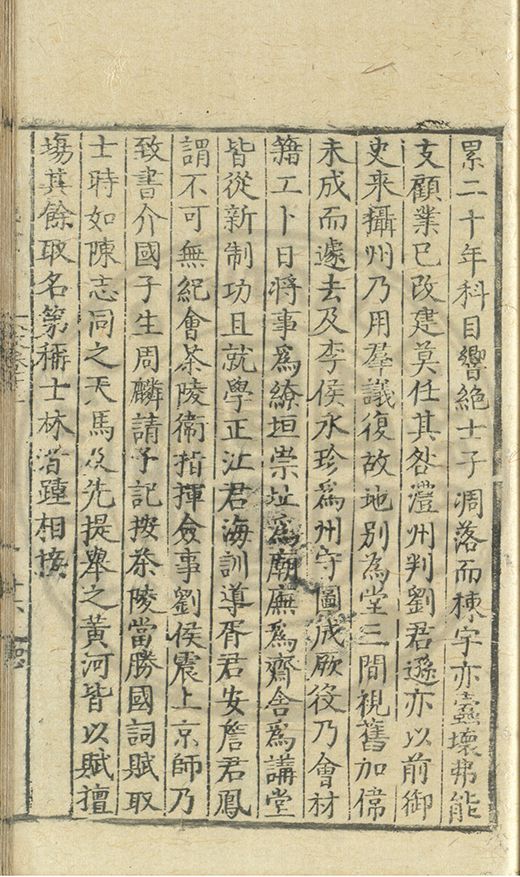 累二十年科目響絶士子凋落而棟宇亦蠧壞弗能
支顧業已改建莫任其咎澧州判劉君遜亦以前御
史来攝州乃用羣議復故地别為堂三間視舊加偉
未成而遽去及李侯永珍為州守圖成厥役乃會材
籍工卜日將事為繚垣崇址為廟廡為齋舎為講堂
皆從新制功且就學正江君海訓導胥君安詹君鳳
謂不可無紀會茶陵衛指揮僉事劉侯震上京師乃
致書介國子生周麟請予記按茶陵當勝國詞賦取
士時如陳志同之天馬及先提舉之黄河皆以賦擅
塲其餘取名第稱士林者踵相接